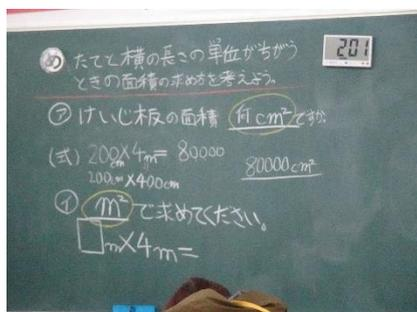 め たてと横の長さの単位がちがう
ときの面積の求め方を考えよう。
201
ア けいじ板の面積 何cm²ですか
(式) 200cm×4m=80000
200cm×400cm 80000cm²
イ m²で求めてください。
□m×4m=